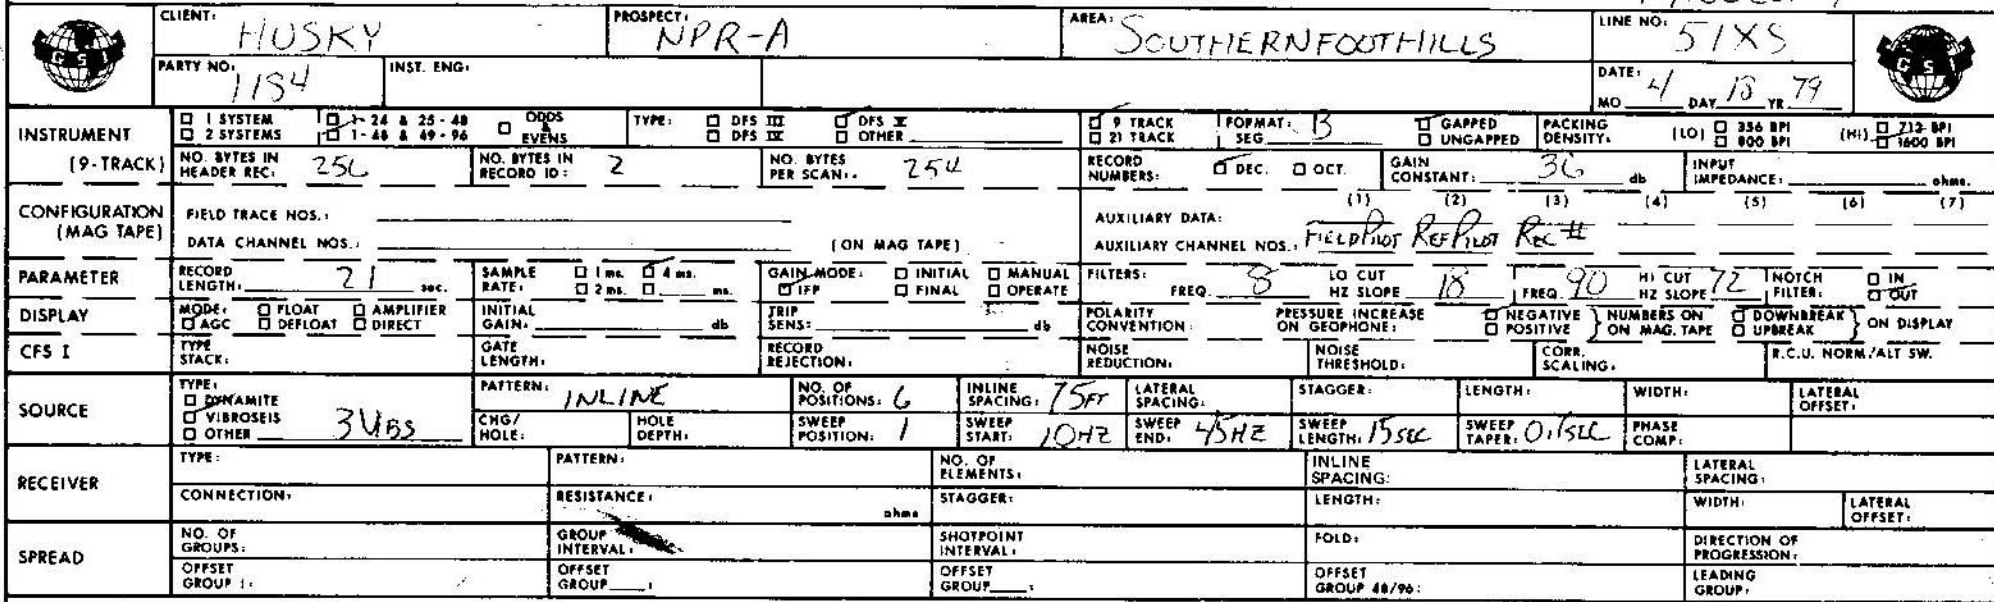 CLIENT: HUSKY PROSPECT: NPR-A AREA: SOUTHERN FOOTHILLS LINE NO: 51XS
GSI GSI
PARTY NO: 1184 INST. ENG: DATE: 4 18 79
MO DAY YR
INSTRUMENT (9-TRACK) 1 SYSTEM 1-24 & 25-48 ODDS & EVENS TYPE: DFS III DFS V 9 TRACK FORMAT: B GAPPED PACKING DENSITY: (LO) 356 BPI (HI) 712 BPI
2 SYSTEMS 1-48 & 49-96 DFS IV OTHER 21 TRACK SEG UNGAPPED 800 BPI 1600 BPI
NO. BYTES IN HEADER REC: 256 NO. BYTES IN RECORD ID: 2 NO. BYTES PER SCAN: 254 RECORD NUMBERS: DEC. OCT. GAIN CONSTANT: 36 db INPUT IMPEDANCE: ohms.
CONFIGURATION (MAG TAPE) FIELD TRACE NOS.: AUXILIARY DATA: (1) (2) (3) (4) (5) (6) (7)
DATA CHANNEL NOS.: (ON MAG TAPE) AUXILIARY CHANNEL NOS.: FIELD PILOT REF PILOT REC #
PARAMETER RECORD LENGTH: 21 sec. SAMPLE RATE: 1 ms. 4 ms. 2 ms. ms. GAIN MODE: INITIAL MANUAL IFP FINAL OPERATE FILTERS: FREQ 8 LO CUT HZ SLOPE 18 FREQ 90 HI CUT HZ SLOPE 72 NOTCH FILTER: IN OUT
DISPLAY MODE: FLOAT AMPLIFIER AGC DEFLOAT DIRECT INITIAL GAIN: db TRIP SENS: db POLARITY CONVENTION: PRESSURE INCREASE ON GEOPHONE: NEGATIVE POSITIVE NUMBERS ON ON MAG. TAPE DOWNBREAK UPBREAK ON DISPLAY
CFS I TYPE STACK: GATE LENGTH: RECORD REJECTION: NOISE REDUCTION: NOISE THRESHOLD: CORR. SCALING: R.C.U. NORM/ALT SW.
SOURCE TYPE: DYNAMITE VIBROSEIS OTHER 3 VIBS PATTERN: INLINE NO. OF POSITIONS: 6 INLINE SPACING: 75FT LATERAL SPACING: STAGGER: LENGTH: WIDTH: LATERAL OFFSET:
CHG/HOLE: HOLE DEPTH: SWEEP POSITION: 1 SWEEP START: 10HZ SWEEP END: 45HZ SWEEP LENGTH: 15 SEC SWEEP TAPER: PHASE COMP:
RECEIVER TYPE: PATTERN: NO. OF ELEMENTS: INLINE SPACING: LATERAL SPACING:
CONNECTION: RESISTANCE: ohms STAGGER: LENGTH: WIDTH: LATERAL OFFSET:
SPREAD NO. OF GROUPS: GROUP INTERVAL: SHOTPOINT INTERVAL: FOLD: DIRECTION OF PROGRESSION:
OFFSET GROUP 1: OFFSET GROUP : OFFSET GROUP : OFFSET GROUP 48/96: LEADING GROUP: